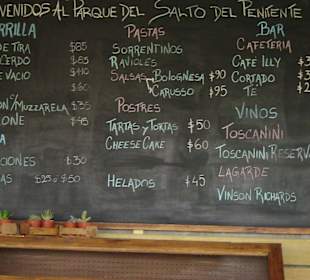 VENIDOS AL PARQUE DEL SALTO DEL PENITENTE
RRILLA
DE TIRA $85
CERDO $85
VACIO $
$60
MUZZARELA $35
ONE $45
CIONES $30
AS $25 ó $50
PASTAS
SORRENTINOS
RAVIOLES
SALSAS BOLOGNESA $90
CARUSSO $95
POSTRES
TARTAS Y TORTAS $50
CHEESE CAKE $60
HELADOS $45
BAR
CAFETERIA
CAFE ILLY $3
CORTADO $3
TÉ $2
VINOS
TOSCANINI
TOSCANINI RESERVA
LAGARDE
VINSON RICHARDS